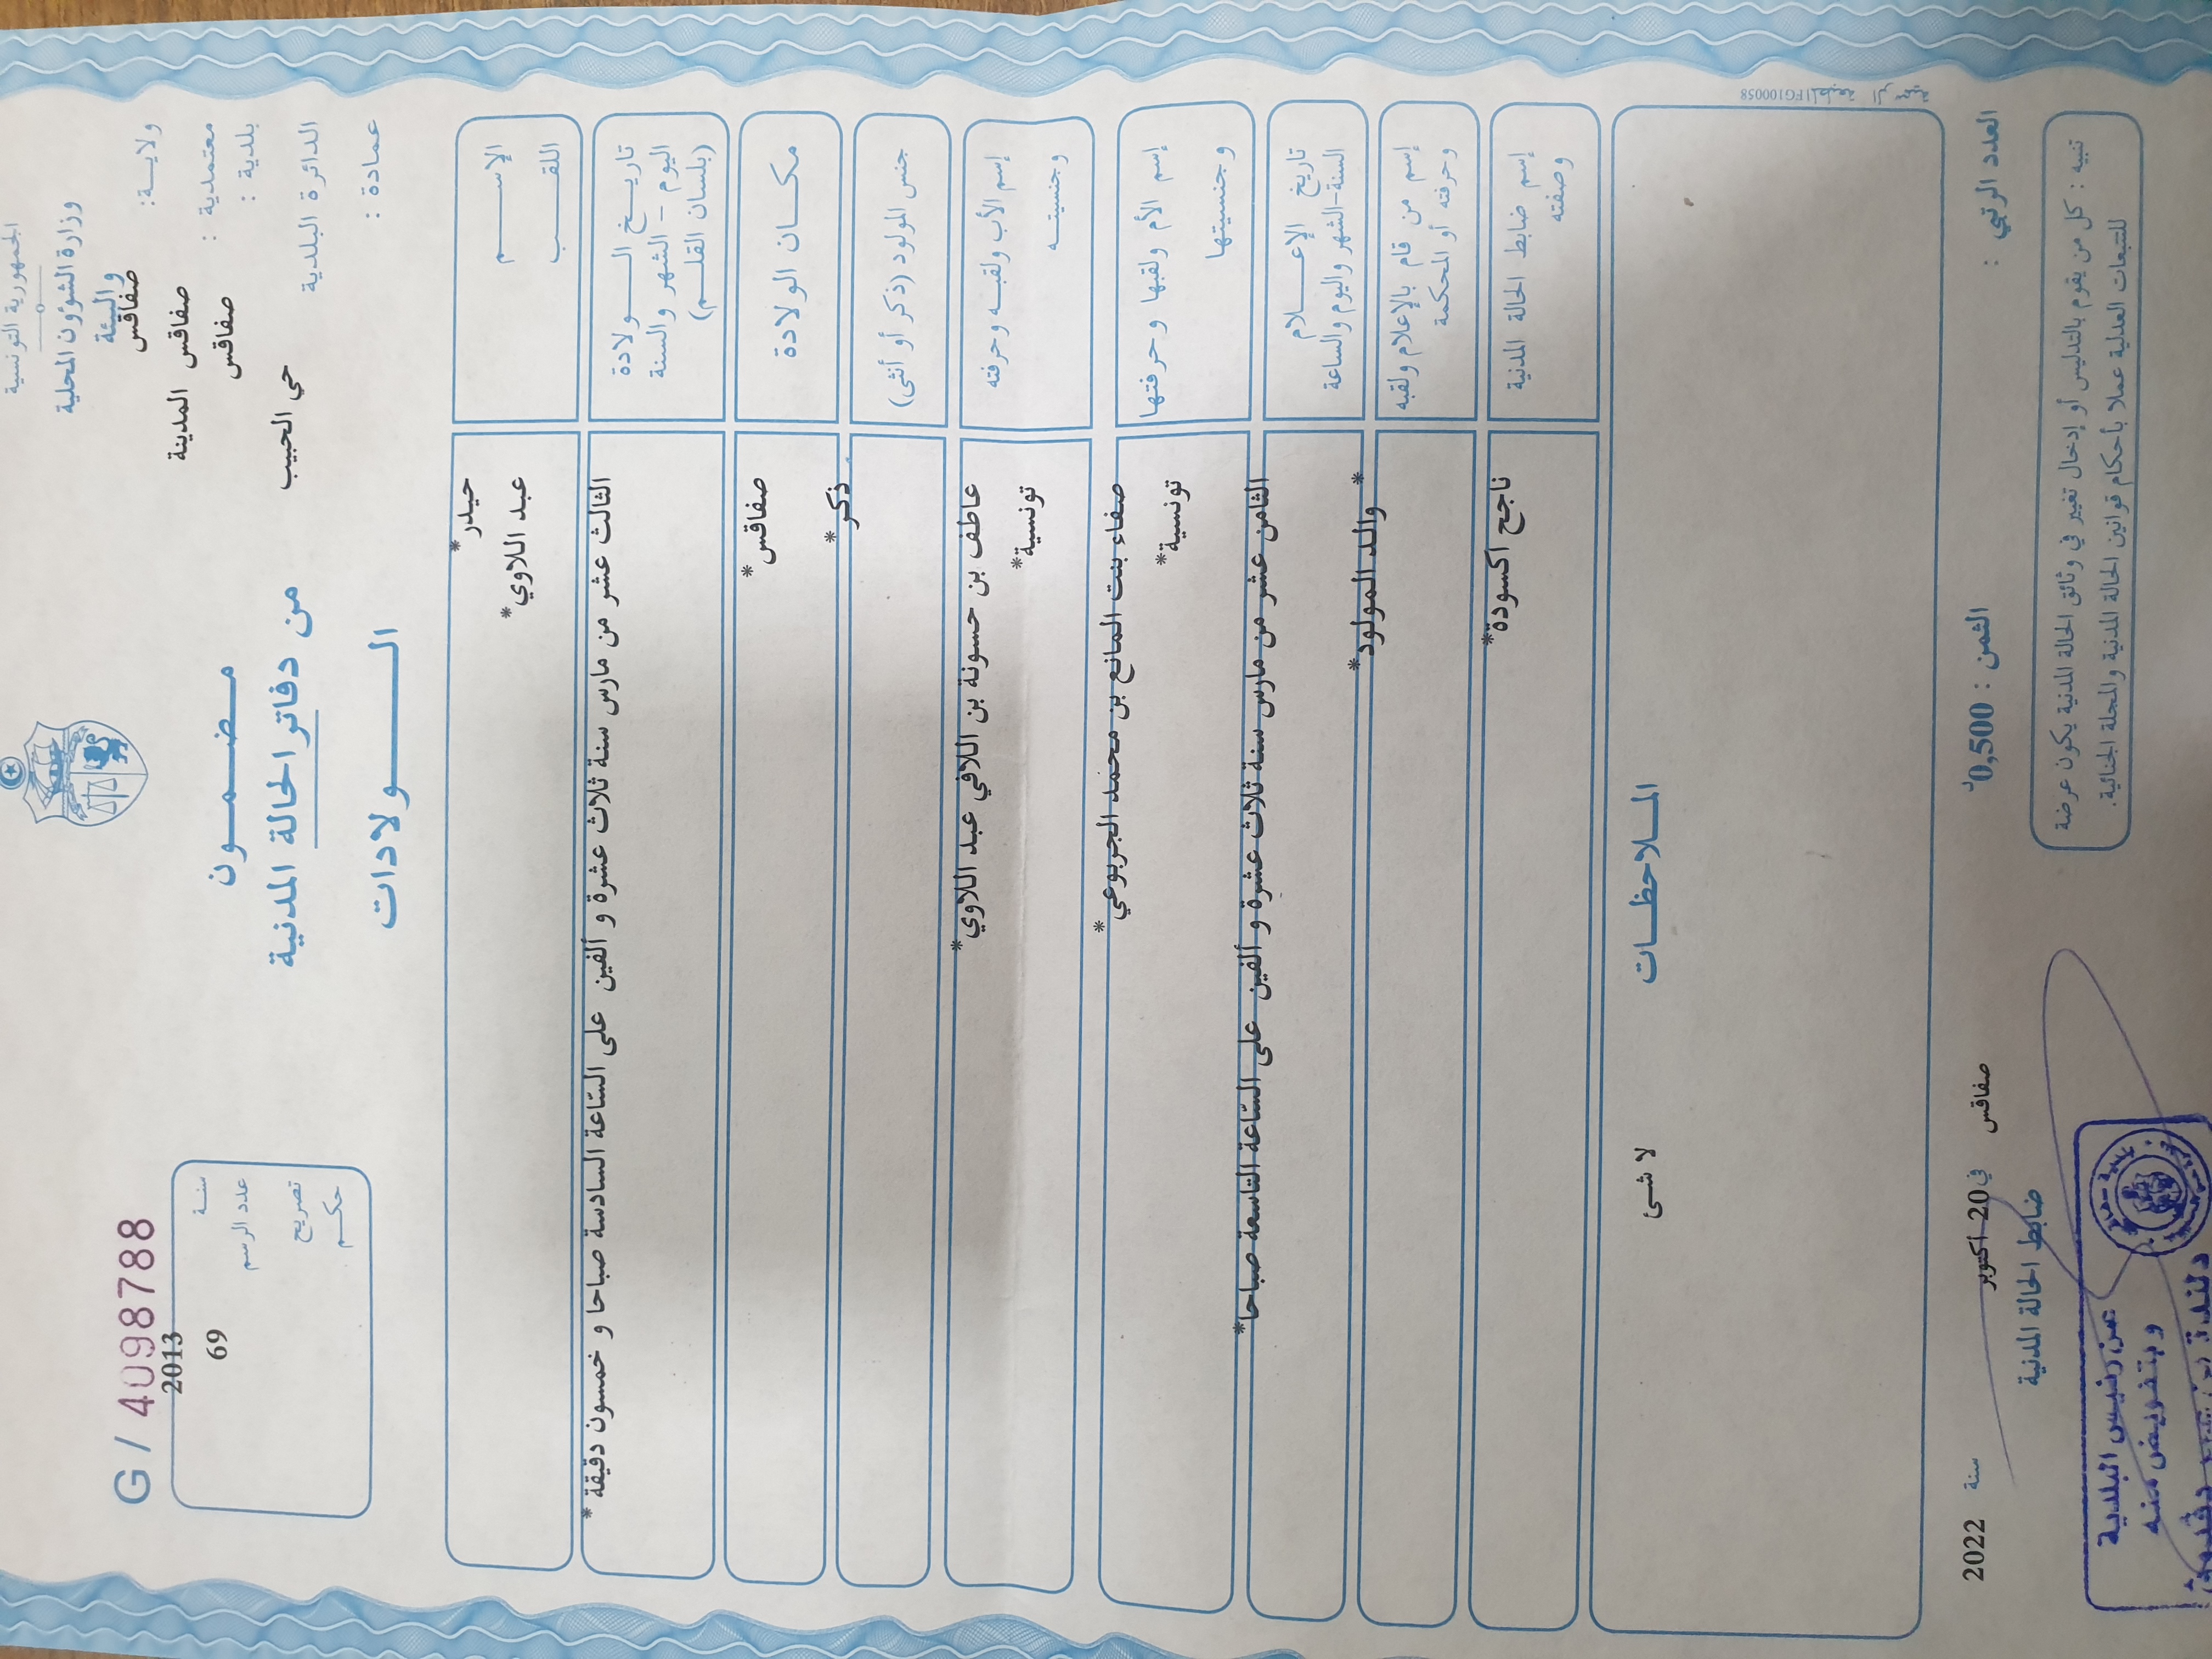 الجمهورية التونسية
وزارة الشؤون المحلية
والبيئة
ولايــة: صفاقس
معتمدية : صفاقس المدينة
بلدية : صفاقس
الدائرة البلدية حي الحبيب
عمادة :
مـضـمـون
من دفاتر الحالة المدنية
الـــولادات
G / 4098788
سنة 2013
عدد الرسم 69
تصريح
حكم
الإســـم حيدر*
اللقـــب عبد اللاوي*
تاريـخ الــولادة
اليوم - الشهر والسنة
(بلسان القلـم)
الثالث عشر من مارس سنة ثلاث عشرة و ألفين على السّاعة السادسة صباحا و خمسون دقيقة *
مكـان الولادة صفاقس*
جنس المولود (ذكر أو أنثى) ذكر*
إسم الأب ولقبـه وحرفته عاطف بن حسونة بن اللافي عبد اللاوي*
وجنسيتـه تونسية*
إسم الأم ولقبها وحرفتها صفاء بنت المانع بن محمد الجربوعي*
وجنسيتها تونسية*
تاريخ الإعــلام
السنة-الشهر واليوم والساعة
الثامن عشر من مارس سنة ثلاث عشرة و ألفين على السّاعة التاسعة صباحا*
إسم من قام بالإعلام ولقبه
وحرفته أو المحكمة
* والد المولود*
إسم ضابط الحالة المدنية ناجح اكسودة*
وصفته
المـلاحظـات
لا شئ
المطبعة الرسمية FG100058
العدد الرتبي :
الثمن : 0,500د
صفاقس في 20 اكتوبر سنة 2022
ضابط الحالة المدنية
تنبيه : كل من يقوم بالتدليس أو إدخال تغيير في وثائق الحالة المدنية يكون عرضة
للتتبعات العدلية عملا بأحكام قوانين الحالة المدنية والمجلة الجنائية.
عن رئيس البلدية
وبتفويض منه